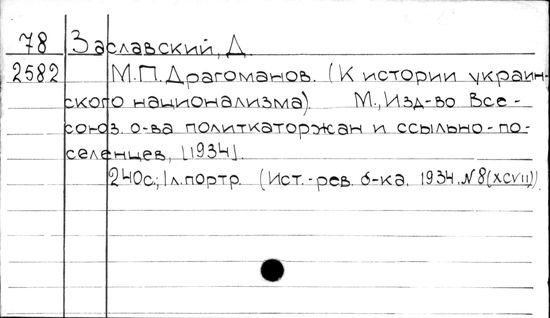 78 Заславский, Д.
2582 М.П. Драгоманов. (К истории украин-
ского национализма). М., Изд-во Все-
союз. о-ва политкаторжан и ссыльно-по-
селенцев, [1934].
240с.; 1 л.портр. (Ист.-рев. б-ка. 1934. N8(XCVII))